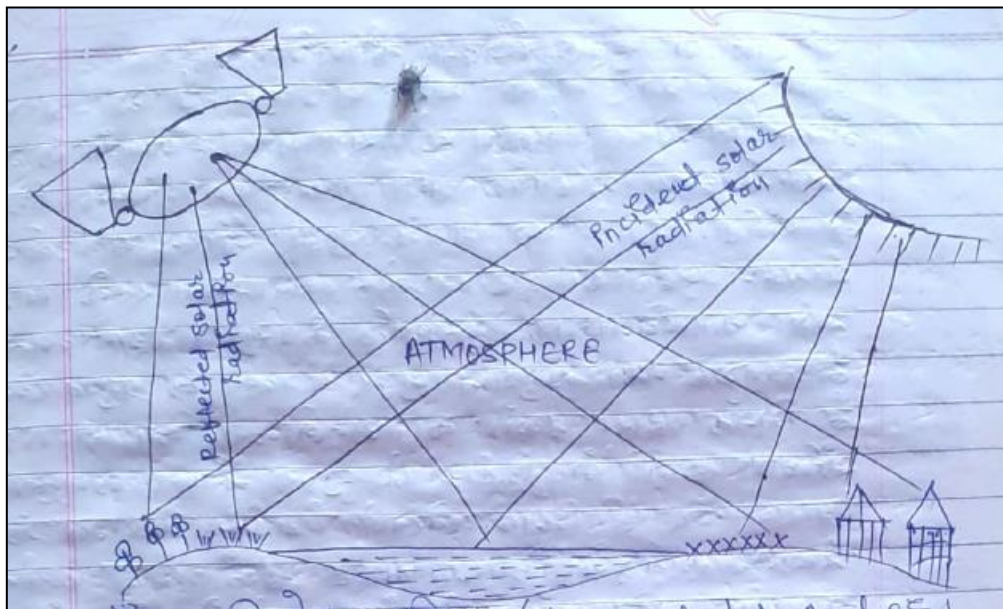 Incident solar
radiation
Reflected solar
radiation
ATMOSPHERE